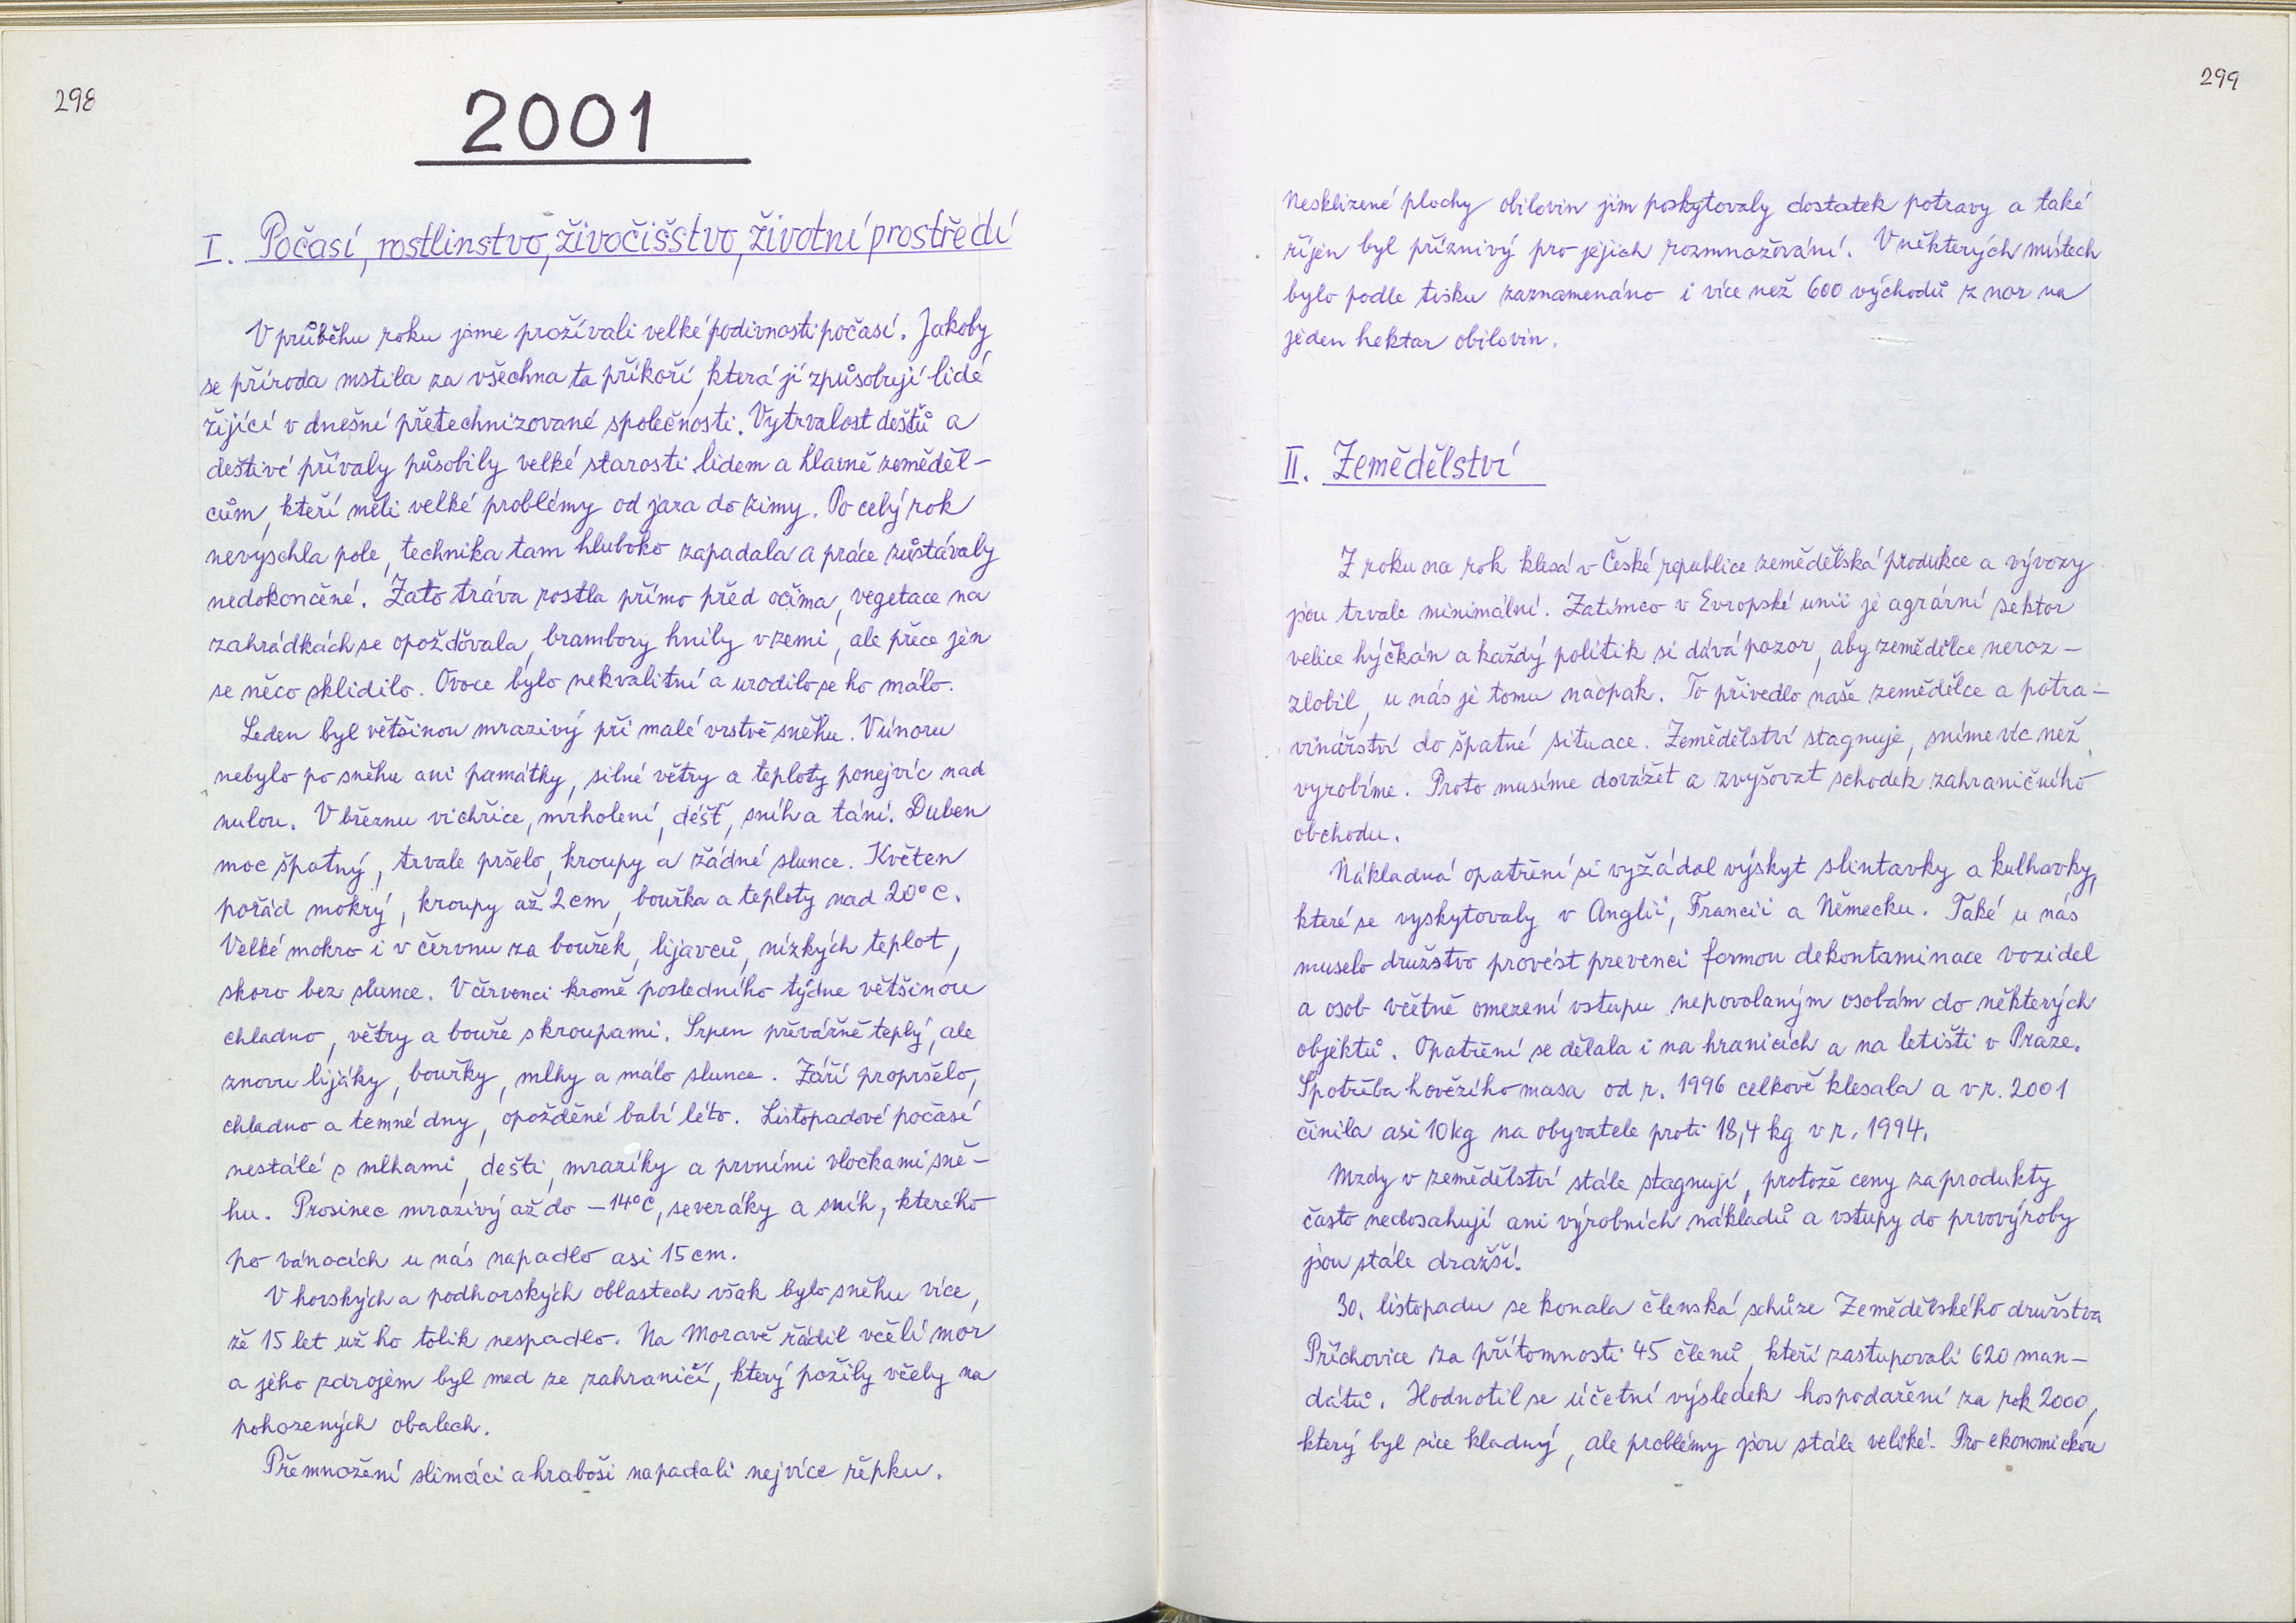 298
2001
I. Počasí, rostlinstvo, živočišstvo, životní prostředí
V průběhu roku jsme prožívali velké podivnosti počasí. Jakoby
se příroda mstila za všechna ta příkoří, která jí způsobují lidé
žijící v dnešní přetechnizované společnosti. Vytrvalost dešťů a
deštivé přívaly působily velké starosti lidem a hlavně zeměděl-
cům, kteří měli velké problémy od jara do zimy. Po celý rok
nevyschla pole, technika tam hluboko zapadala a práce zůstávaly
nedokončené. Zato tráva rostla přímo před očima, vegetace na
zahrádkách se opožďovala, brambory hnily v zemi, ale přece jen
se něco sklidilo. Ovoce bylo nekvalitní a urodilo se ho málo.
Leden byl většinou mrazivý při malé vrstvě sněhu. V únoru
nebylo po sněhu ani památky, silné větry a teploty ponejvíc nad
nulou. V březnu vichřice, mrholení, déšť, sníh a tání. Duben
moc špatný, trvale pršelo, kroupy a žádné slunce. Květen
pořád mokrý, kroupy až 2 cm, bouřka a teploty nad 20°C.
Velké mokro i v červnu za bouřek, lijavců, nízkých teplot,
skoro bez slunce. V červenci kromě posledního týdne většinou
chladno, větry a bouře s kroupami. Srpen převážně teplý, ale
znovu lijáky, bouřky, mlhy a málo slunce. Září propršelo,
chladno a temné dny, opožděné babí léto. Listopadové počasí
nestálé s mlhami, dešti, mrazíky a prvními vločkami sně-
hu. Prosinec mrazivý až do -14°C, severáky a sníh, kterého
po vánocích u nás napadlo asi 15 cm.
V horských a podhorských oblastech však bylo sněhu více,
že 15 let už ho tolik nespadlo. Na Moravě řádil včelí mor
a jeho zdrojem byl med ze zahraničí, který požily včely na
pohozených obalech.
Přemnožení slimáci a hraboši napadali nejvíce řepku.
299
Nesklizené plochy obilovin jim poskytovaly dostatek potravy a také
říjen byl příznivý pro jejich rozmnožování. V některých místech
bylo podle tisku zaznamenáno i více než 600 východů z nor na
jeden hektar obilovin.
II. Zemědělství
Z roku na rok klesá v České republice zemědělská produkce a vývozy
jsou trvale minimální. Zatímco v Evropské unii je agrární sektor
velice hýčkán a každý politik si dává pozor, aby zemědělce neroz-
zlobil, u nás je tomu naopak. To přivedlo naše zemědělce a potra-
vinářství do špatné situace. Zemědělství stagnuje, sníme víc než
vyrobíme. Proto musíme dovážet a zvyšovat schodek zahraničního
obchodu.
Nákladná opatření si vyžádal výskyt slintavky a kulhavky,
které se vyskytovaly v Anglii, Francii a Německu. Také u nás
muselo družstvo provést prevenci formou dekontaminace vozidel
a osob včetně omezení vstupu nepovolaným osobám do některých
objektů. Opatření se dělala i na hranicích a na letišti v Praze.
Spotřeba hovězího masa od r. 1996 celkově klesala a v r. 2001
činila asi 10 kg na obyvatele proti 18,4 kg v r. 1994.
Mzdy v zemědělství stále stagnují, protože ceny za produkty
často nedosahují ani výrobních nákladů a vstupy do prvovýroby
jsou stále dražší.
30. listopadu se konala členská schůze Zemědělského družstva
Příchovice za přítomnosti 45 členů, kteří zastupovali 620 man-
dátů. Hodnotil se účetní výsledek hospodaření za rok 2000,
který byl sice kladný, ale problémy jsou stále veliké. Pro ekonomickou